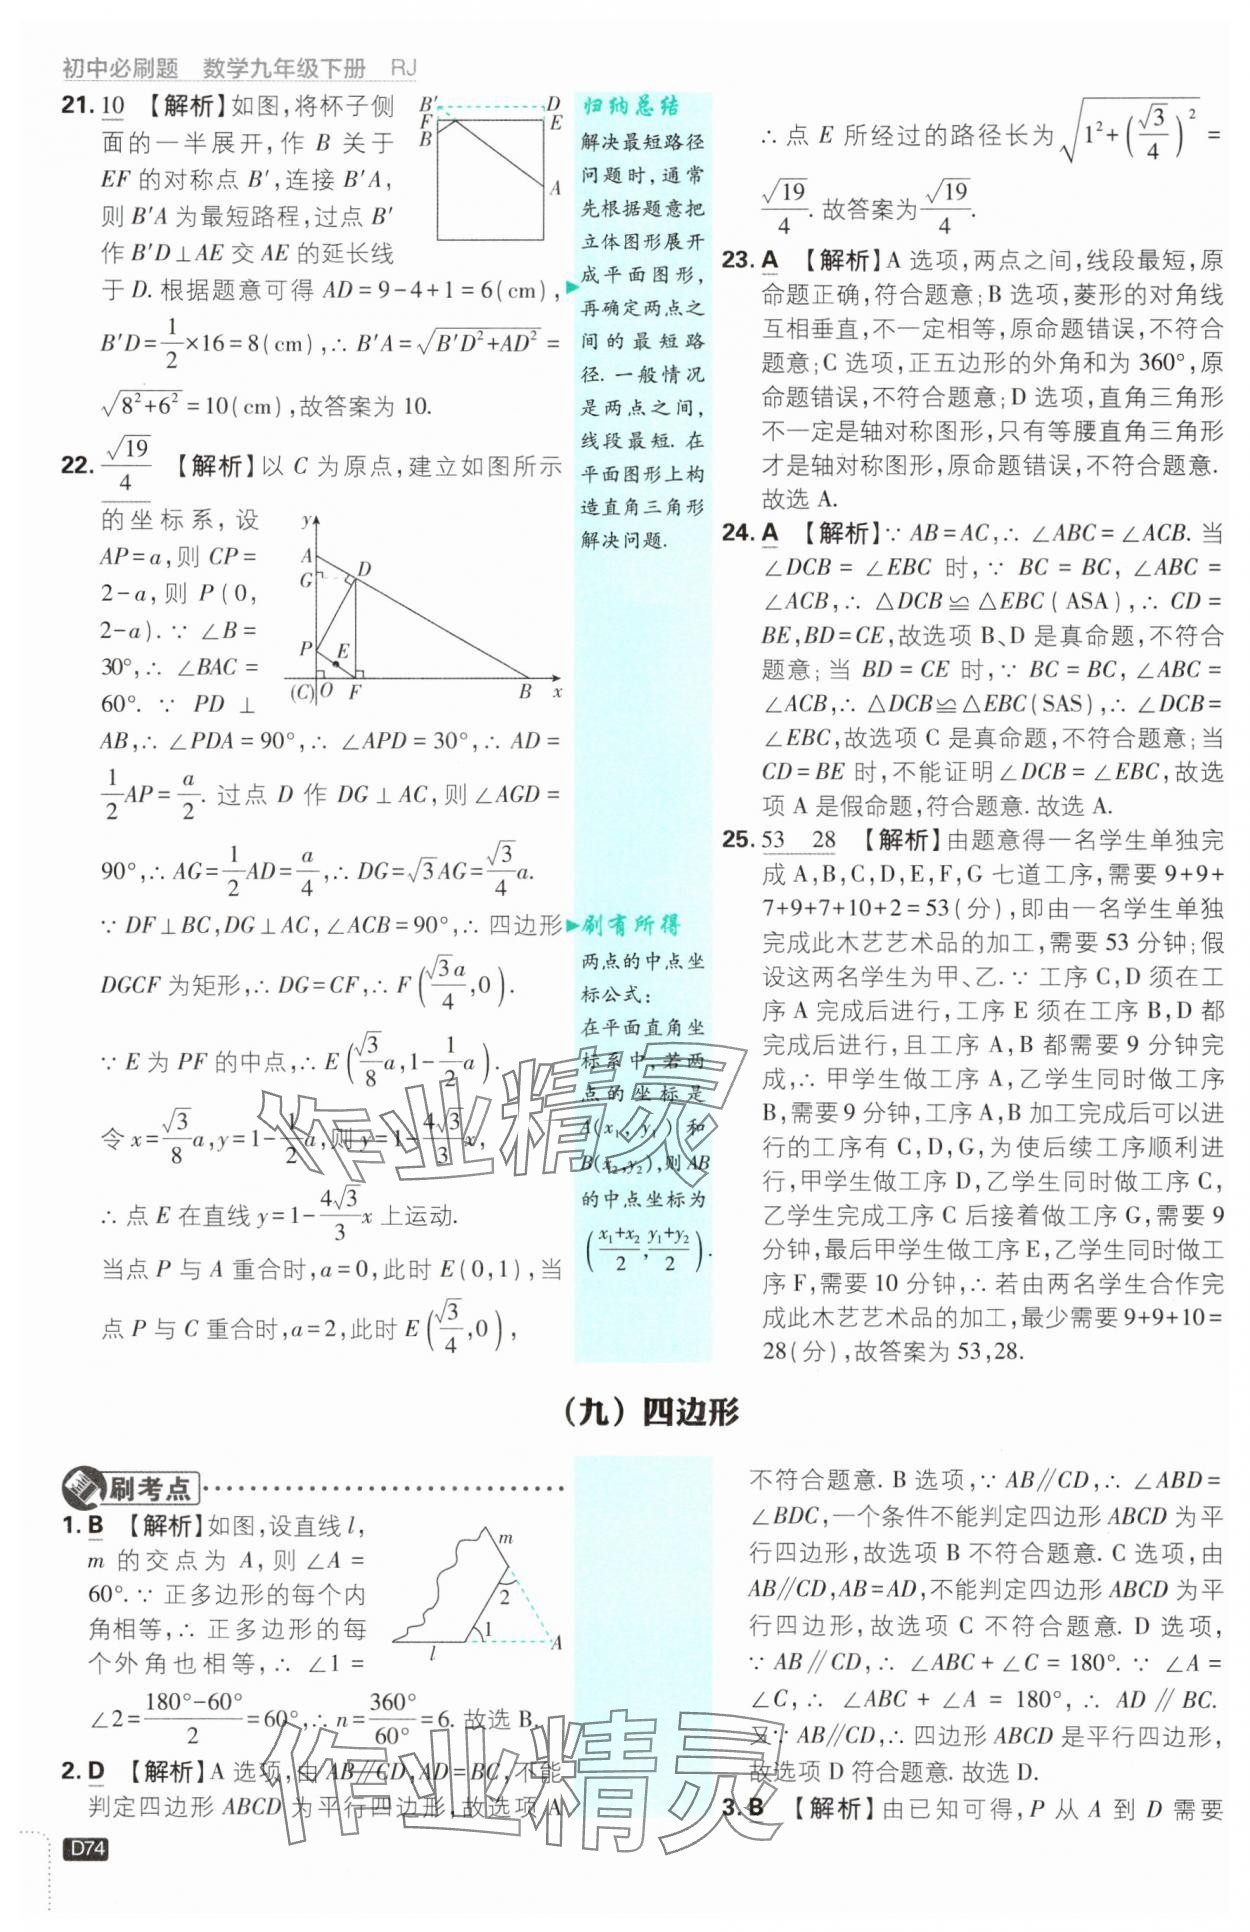 初中必刷题　数学九年级下册　RJ
21. 10 【解析】如图,将杯子侧
面的一半展开,作 B 关于
EF 的对称点 B′,连接 B′A,
则 B′A 为最短路程,过点 B′
作 B′D⊥AE 交 AE 的延长线
于 D. 根据题意可得 AD=9-4+1=6(cm),
B′D=1/2×16=8(cm),∴ B′A=√(B′D²+AD²)=
√(8²+6²)=10(cm),故答案为 10.
B′ D
F E
B
A
22. √19/4 【解析】以 C 为原点,建立如图所示
的坐标系,设
AP=a,则 CP=
2-a,则 P(0,
2-a). ∵ ∠B=
30°,∴ ∠BAC=
60°. ∵ PD⊥
AB,∴ ∠PDA=90°,∴ ∠APD=30°,∴ AD=
1/2AP=a/2. 过点 D 作 DG⊥AC,则∠AGD=
90°,∴ AG=1/2AD=a/4,∴ DG=√3AG=√3/4a.
∵ DF⊥BC,DG⊥AC,∠ACB=90°,∴ 四边形
DGCF 为矩形,∴ DG=CF,∴ F(√3a/4,0).
∵ E 为 PF 的中点,∴ E(√3/8a,1-1/2a).
令 x=√3/8a,y=1-1/2a,则 y=1-4√3/3x,
∴ 点 E 在直线 y=1-4√3/3x 上运动.
当点 P 与 A 重合时,a=0,此时 E(0,1),当
点 P 与 C 重合时,a=2,此时 E(√3/4,0),
y
A
G D
P E
(C) O F B x
归纳总结
解决最短路径
问题时,通常
先根据题意把
立体图形展开
成平面图形,
再确定两点之
间的最短路
径. 一般情况
是两点之间,
线段最短. 在
平面图形上构
造直角三角形
解决问题.
刷有所得
两点的中点坐
标公式:
在平面直角坐
标系中,若两
点的坐标是
A(x₁,y₁)和
B(x₂,y₂),则 AB
的中点坐标为
((x₁+x₂)/2,(y₁+y₂)/2).
∴ 点 E 所经过的路径长为√(1²+(√3/4)²)=
√19/4. 故答案为√19/4.
23. A 【解析】A 选项,两点之间,线段最短,原
命题正确,符合题意;B 选项,菱形的对角线
互相垂直,不一定相等,原命题错误,不符合
题意;C 选项,正五边形的外角和为 360°,原
命题错误,不符合题意;D 选项,直角三角形
不一定是轴对称图形,只有等腰直角三角形
才是轴对称图形,原命题错误,不符合题意.
故选 A.
24. A 【解析】∵ AB=AC,∴ ∠ABC=∠ACB. 当
∠DCB=∠EBC 时,∵ BC=BC,∠ABC=
∠ACB,∴ △DCB≌△EBC(ASA),∴ CD=
BE,BD=CE,故选项 B、D 是真命题,不符合
题意;当 BD=CE 时,∵ BC=BC,∠ABC=
∠ACB,∴ △DCB≌△EBC(SAS),∴ ∠DCB=
∠EBC,故选项 C 是真命题,不符合题意;当
CD=BE 时,不能证明∠DCB=∠EBC,故选
项 A 是假命题,符合题意. 故选 A.
25. 53 28 【解析】由题意得一名学生单独完
成 A,B,C,D,E,F,G 七道工序,需要 9+9+
7+9+7+10+2=53(分),即由一名学生单独
完成此木艺艺术品的加工,需要 53 分钟;假
设这两名学生为甲、乙. ∵ 工序 C,D 须在工
序 A 完成后进行,工序 E 须在工序 B,D 都
完成后进行,且工序 A,B 都需要 9 分钟完
成,∴ 甲学生做工序 A,乙学生同时做工序
B,需要 9 分钟,工序 A,B 加工完成后可以进
行的工序有 C,D,G,为使后续工序顺利进
行,甲学生做工序 D,乙学生同时做工序 C,
乙学生完成工序 C 后接着做工序 G,需要 9
分钟,最后甲学生做工序 E,乙学生同时做工
序 F,需要 10 分钟,∴ 若由两名学生合作完
成此木艺艺术品的加工,最少需要 9+9+10=
28(分),故答案为 53,28.
（九）四边形
刷考点
1. B 【解析】如图,设直线 l,
m 的交点为 A,则∠A=
60°. ∵ 正多边形的每个内
角相等,∴ 正多边形的每
个外角也相等,∴ ∠1=
∠2=(180°-60°)/2=60°,∴ n=360°/60°=6. 故选 B.
m
2
1
l A
2. D 【解析】A 选项,由 AB∥CD,AD=BC,不能
判定四边形 ABCD 为平行四边形,故选项 A
不符合题意. B 选项,∵ AB∥CD,∴ ∠ABD=
∠BDC,一个条件不能判定四边形 ABCD 为平
行四边形,故选项 B 不符合题意. C 选项,由
AB∥CD,AB=AD,不能判定四边形 ABCD 为平
行四边形,故选项 C 不符合题意. D 选项,
∵ AB∥CD,∴ ∠ABC+∠C=180°. ∵ ∠A=
∠C,∴ ∠ABC+∠A=180°,∴ AD∥BC.
又∵ AB∥CD,∴ 四边形 ABCD 是平行四边形,
故选项 D 符合题意. 故选 D.
3. B 【解析】由已知可得,P 从 A 到 D 需要
作业精灵
作业精灵
D74